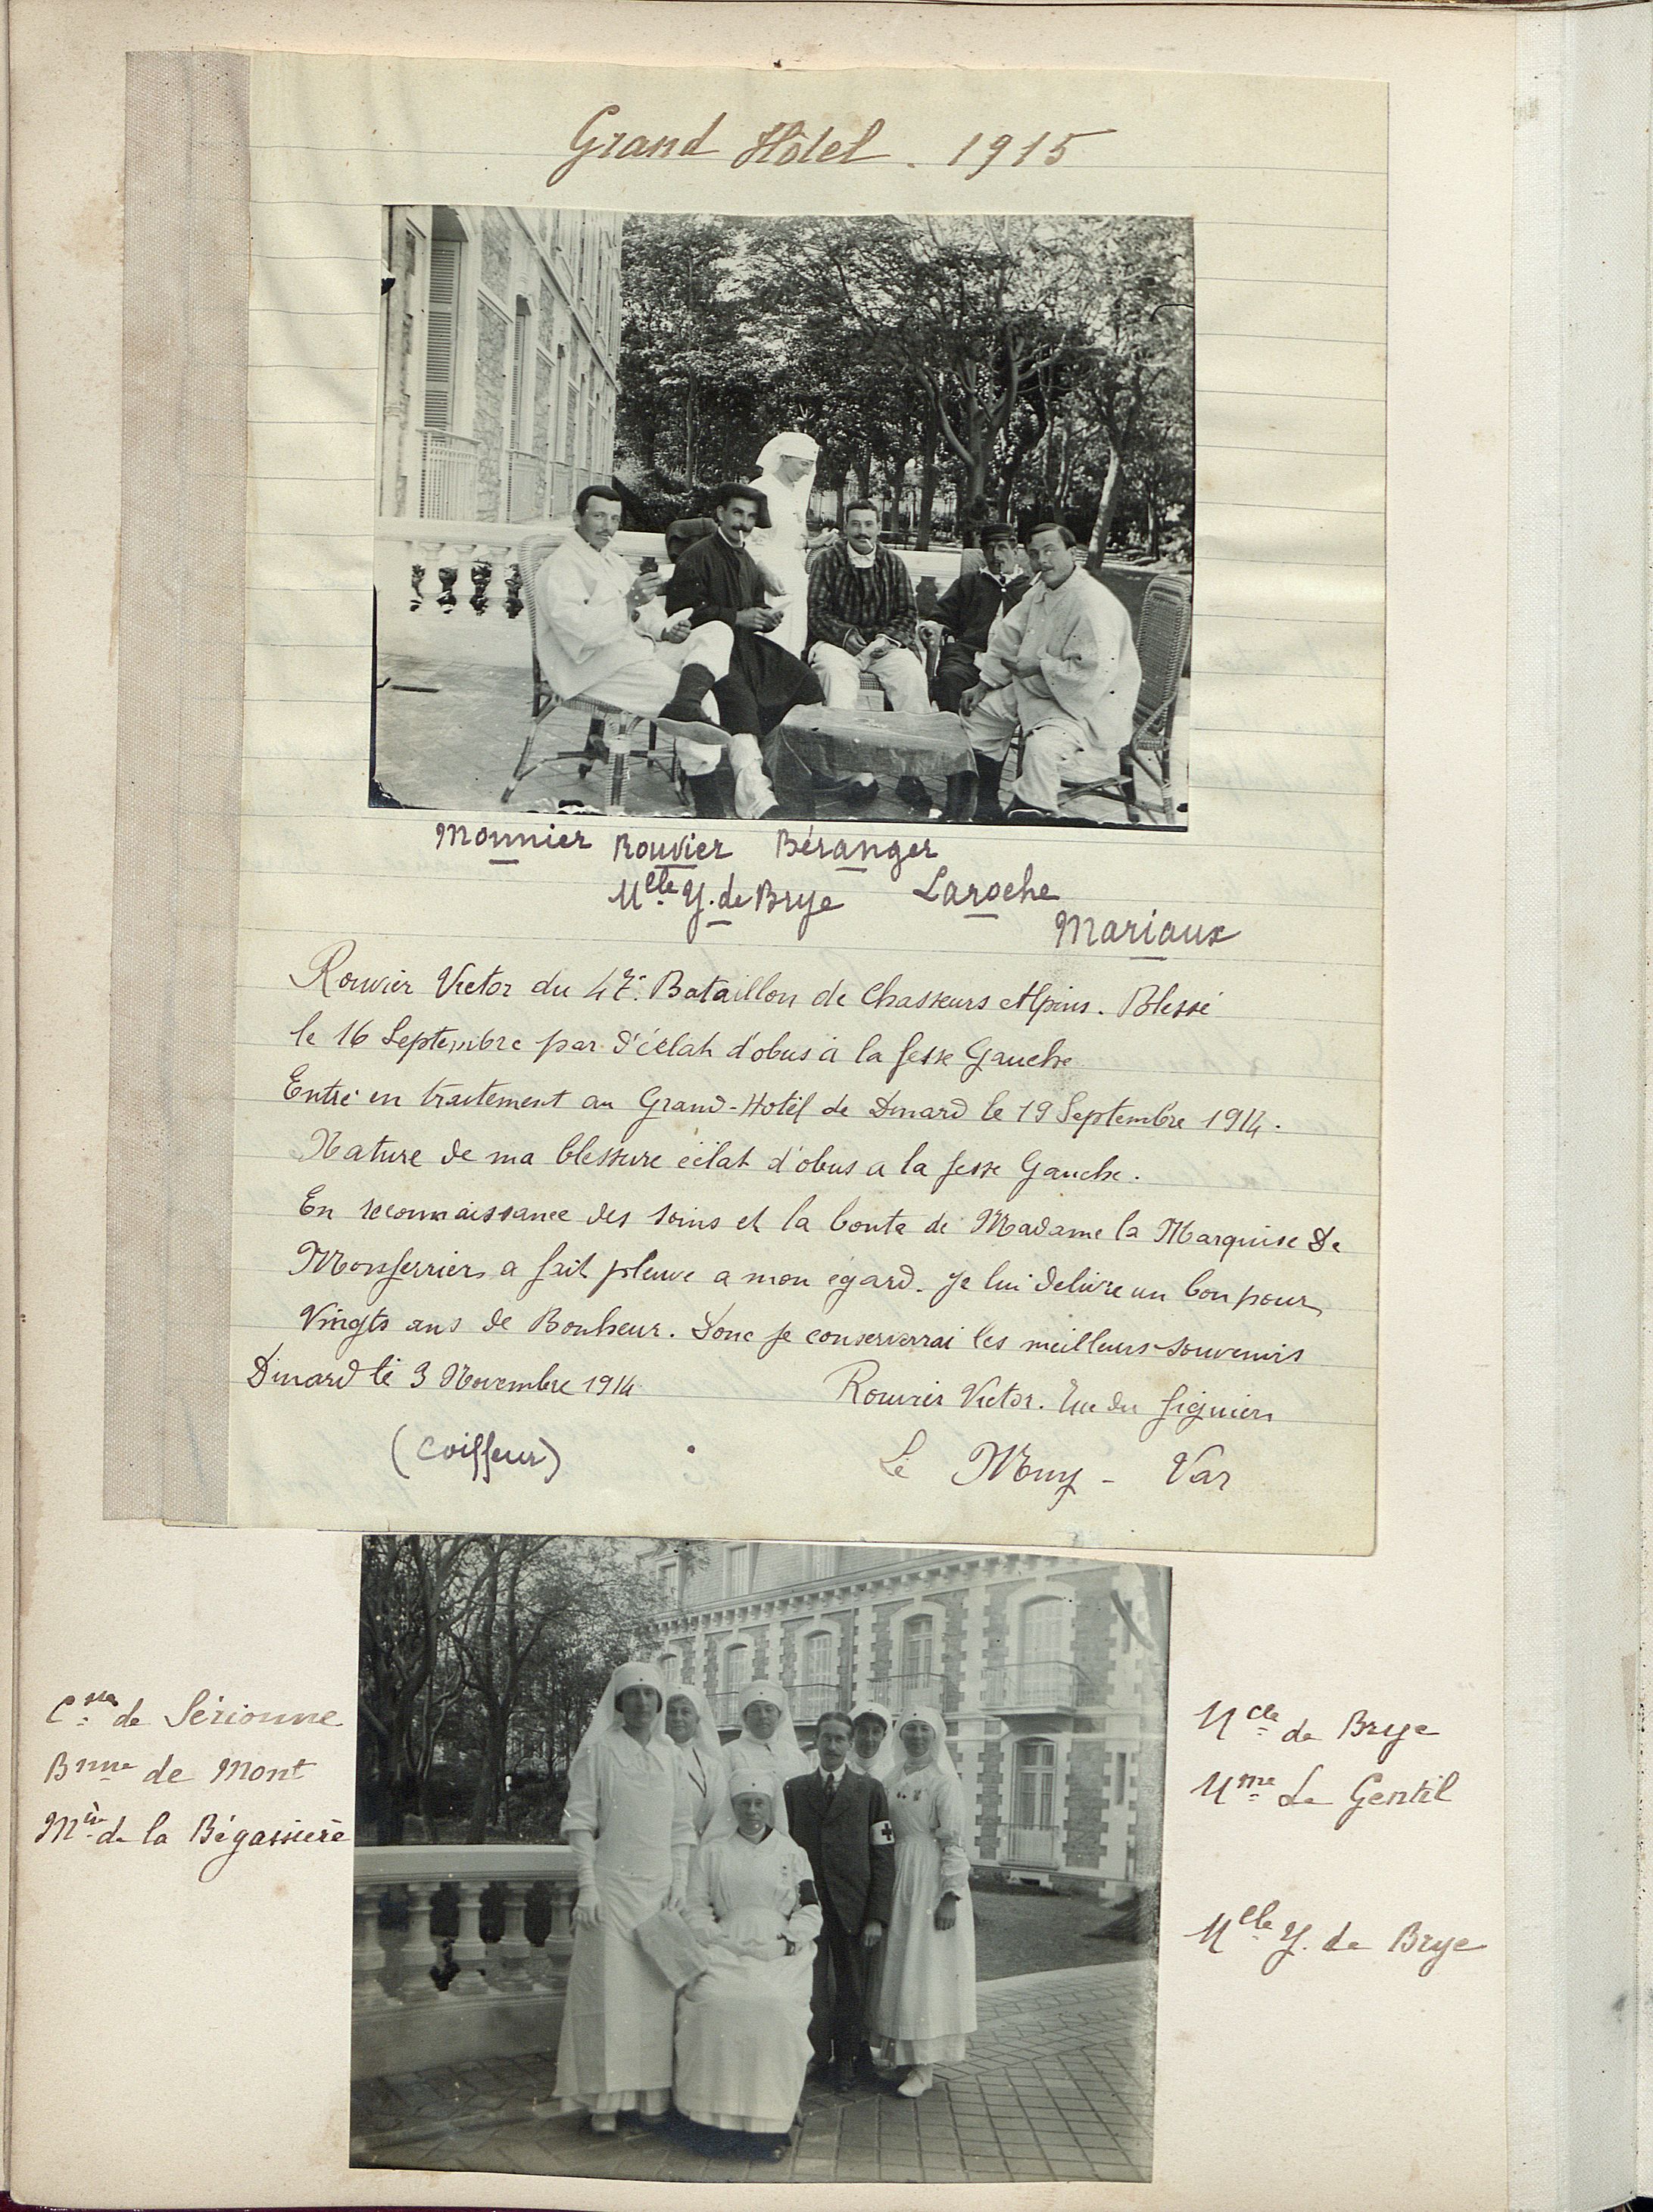 Grand Hôtel. 1915
Monnier Rouvier Béranger
Mlle Y. de Brye Laroche
Mariaux
Rouvier Victor du 47e Bataillon de Chasseurs Alpins. Blessé
le 16 Septembre par d'éclat d'obus à la fesse Gauche
Entré en traitement au Grand-Hotel de Dinard le 19 Septembre 1914.
Nature de ma blessure éclat d'obus a la fesse Gauche.
En reconnaissance des soins et la bonte de Madame la Marquise De
Monsferrier a fait pleuve a mon égard. Je lui delivre un bon pour
Vingts ans de Bonheur. Donc je conserverrai les meilleurs souvenirs
Dinard le 3 Novembre 1914
Rouvier Victor. Rue du figuier
(Coiffeur)
Le Muy - Var
Csse de Sérionne
Bnne de Mont
Mise de la Bégassière
Mlle de Brye
Mme Le Gentil
Mlle Y. de Brye